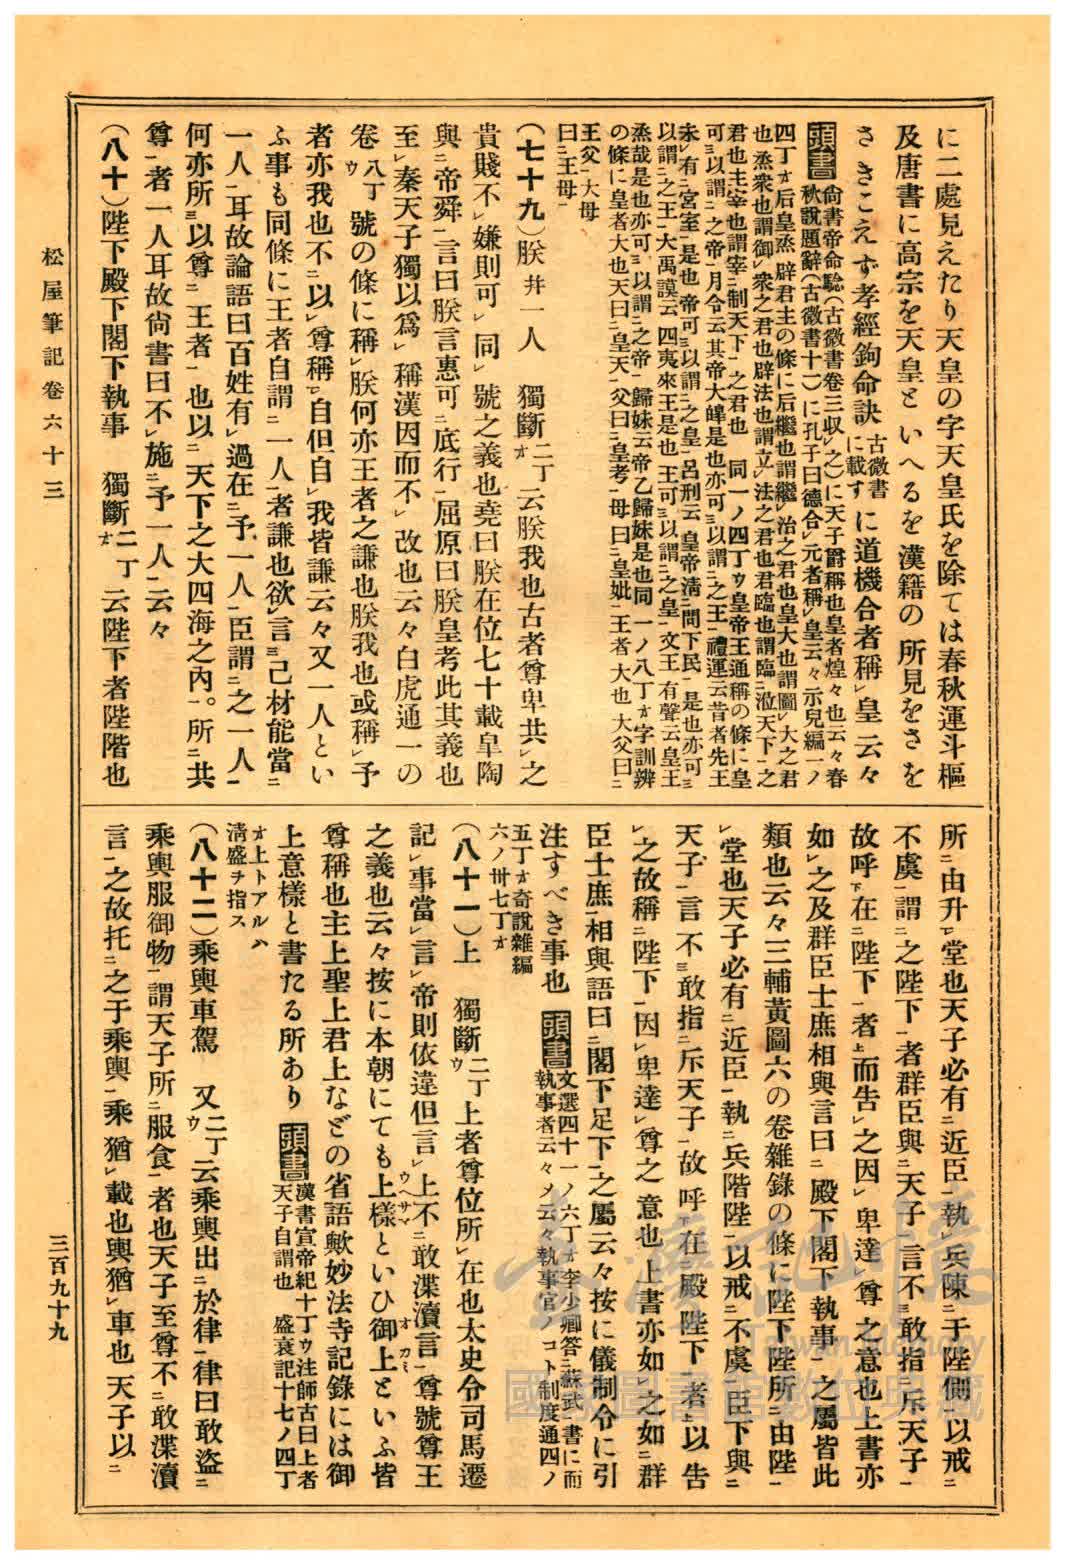 に二處見えたり天皇の字天皇氏を除ては春秋運斗樞
及唐書に高宗を天皇といへるを漢籍の所見をさを
さきこえず孝經鉤命訣古微書に載すに道機合者稱レ皇云々
頭書 尙書帝命驗(古微書卷三収レ之)に天子爵稱也皇者煌々也云々春
秋說題辭(古微書十一)に孔子曰德合レ元者稱レ皇云々示兒編一ノ
四丁オ后皇烝辟君主の條に后繼也謂繼レ治之君也皇大也謂圖レ大之君
也烝衆也謂御レ衆之君也辟法也謂立レ法之君也君臨也謂臨ニ涖天下一之
君也主宰也謂宰ニ制天下一之君也 同一ノ四丁ウ皇帝王通稱の條に皇
可三以謂ニ之帝一月令云其帝大皥是也亦可三以謂ニ之王一禮運云昔者先王
未レ有ニ宮室一是也帝可三以謂ニ之皇一呂刑云皇帝淸ニ問下民一是也亦可三
以謂ニ之王一大禹謨云四夷來王是也王可三以謂ニ之皇一文王有聲云皇王
烝哉是也亦可三以謂ニ之帝一歸妹云帝乙歸妹是也同一ノ八丁オ字訓辨
の條に皇者大也天曰ニ皇天一父曰ニ皇考一母曰ニ皇妣一王者大也大父曰ニ
王父一大母
曰ニ王母一
(七十九)朕井一人 獨斷二丁オ云朕我也古者尊卑共レ之
貴賤不レ嫌則可レ同レ號之義也堯曰朕在位七十載皐陶
與ニ帝舜一言曰朕言惠可ニ底行一屈原曰朕皇考此其義也
至レ秦天子獨以爲レ稱漢因而不レ改也云々白虎通一の
卷八丁ウ號の條に稱レ朕何亦王者之謙也朕我也或稱レ予
者亦我也不ニ以レ尊稱一自但自レ我皆謙云々又一人とい
ふ事も同條に王者自謂ニ一人一者謙也欲レ言三己材能當ニ
一人一耳故論語曰百姓有レ過在ニ予一人一臣謂ニ之一人一
何亦所三以尊ニ王者一也以ニ天下之大四海之內一。所ニ共
尊一者一人耳故尙書曰不レ施ニ予一人一云々
(八十)陛下殿下閣下執事 獨斷二丁オ云陛下者陛階也
所ニ由升一レ堂也天子必有ニ近臣一執レ兵陳ニ于陛側一以戒ニ
不虞一謂ニ之陛下一者群臣與ニ天子一言不三敢指ニ斥天子一
故呼下在ニ陛下一者上而告レ之因レ卑達レ尊之意也上書亦
如レ之及群臣士庶相與言曰ニ殿下閣下執事一之屬皆此
類也云々三輔黃圖六の卷雜錄の條に陛下陛所ニ由陛一
レ堂也天子必有ニ近臣一執ニ兵階陛一以戒ニ不虞一臣下與ニ
天子一言不三敢指ニ斥天子一故呼下在ニ殿陛下一者上以告
レ之故稱ニ陛下一因レ卑達レ尊之意也上書亦如レ之如ニ群
臣士庶一相與語曰ニ閣下足下一之屬云々按に儀制令に引
注すべき事也 頭書 文選四十一ノ六丁オ李少卿答ニ蘇武一書に而
執事者云々〆云々執事官ノコト制度通四ノ
五丁オ奇說雜編
六ノ卅七丁オ
(八十一)上 獨斷二丁ウ上者尊位所レ在也太史令司馬遷
記レ事當レ言レ帝則依違但言レ上不ニ敢渫瀆言一尊號尊王
之義也云々按に本朝にても上樣ウヘサマといひ御上オカミといふ皆
尊稱也主上聖上君上などの省語歟妙法寺記錄には御
上意樣と書たる所あり 頭書 漢書宣帝紀十丁ウ注師古曰上者
天子自謂也 盛衰記十七ノ四丁
オ上トアルハ
淸盛ヲ指ス
(八十二)乘輿車駕 又二丁ウ云乘輿出ニ於律一律曰敢盜ニ
乘輿服御物一謂天子所ニ服食一者也天子至尊不ニ敢渫瀆
言一之故托ニ之于乘輿一乘猶レ載也輿猶レ車也天子以ニ
松屋筆記卷六十三
三百九十九
臺灣記憶
Taiwan Memory
國家圖書館數位典藏